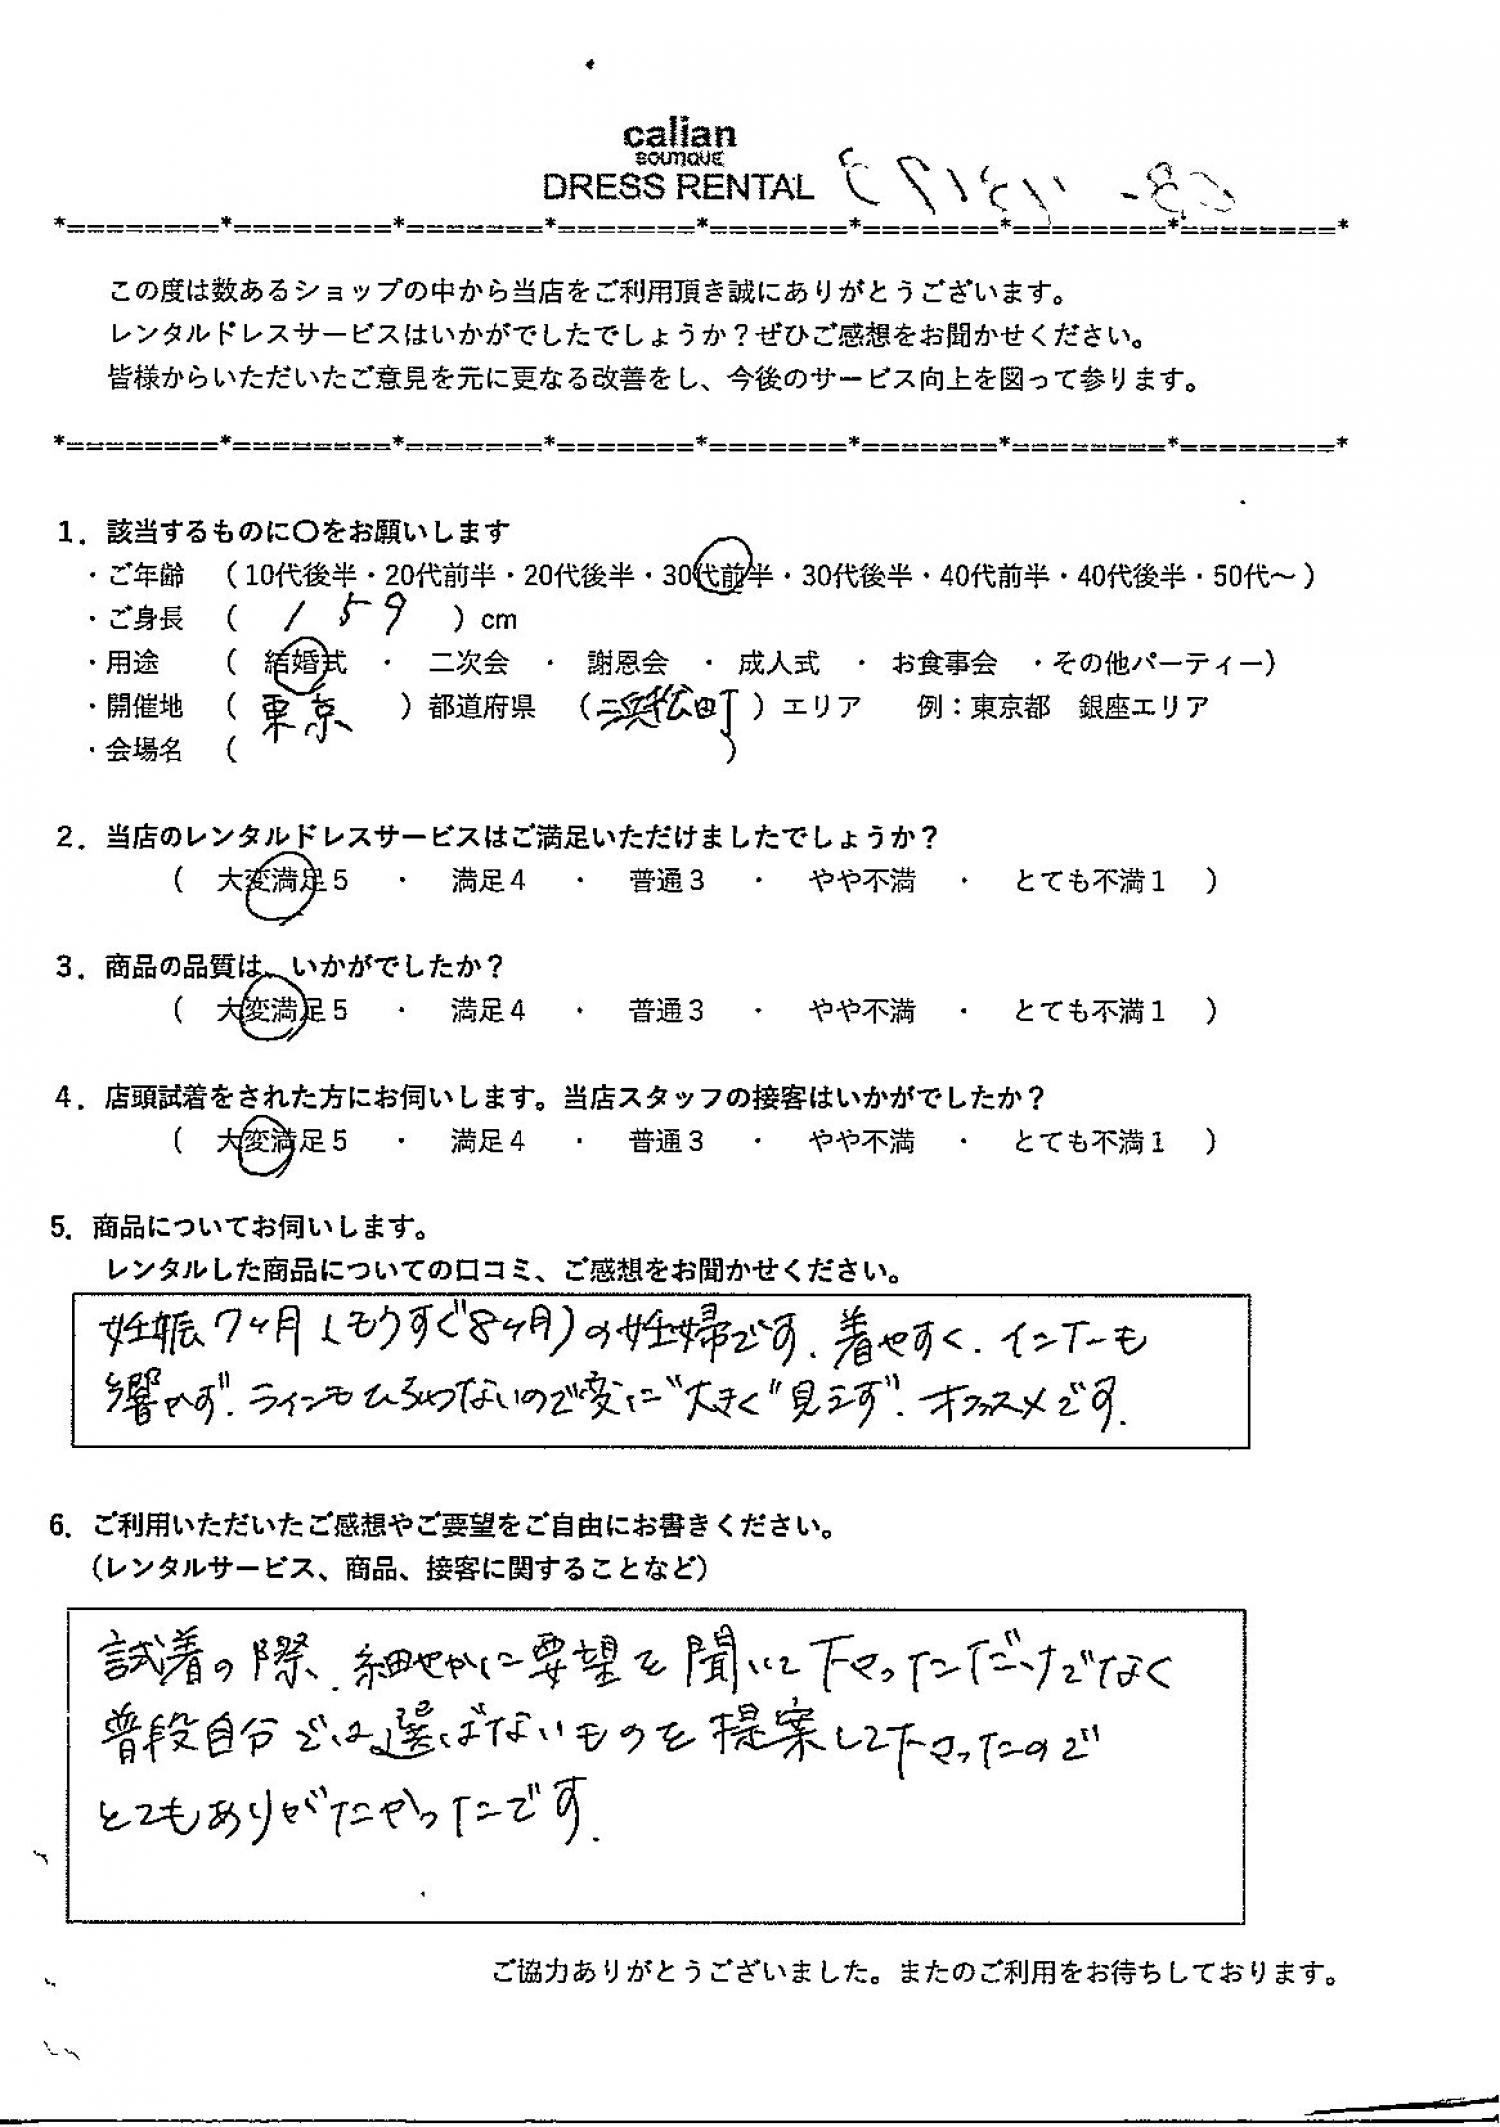 calian
BOUTIQUE
DRESS RENTAL
*========*========*=======*=======*=======*=======*========*========*
この度は数あるショップの中から当店をご利用頂き誠にありがとうございます。
レンタルドレスサービスはいかがでしたでしょうか？ぜひご感想をお聞かせください。
皆様からいただいたご意見を元に更なる改善をし、今後のサービス向上を図って参ります。
*========*========*=======*=======*=======*=======*========*========*
1．該当するものに〇をお願いします
・ご年齢　（10代後半・20代前半・20代後半・30代前半・30代後半・40代前半・40代後半・50代～）
・ご身長　（　159　）cm
・用途　（　結婚式　・　二次会　・　謝恩会　・　成人式　・　お食事会　・その他パーティー）
・開催地　（　東京　）都道府県　（浜松町）エリア　例：東京都　銀座エリア
・会場名　（　　　）
2．当店のレンタルドレスサービスはご満足いただけましたでしょうか？
（　大変満足5　・　満足4　・　普通3　・　やや不満　・　とても不満1　）
3．商品の品質は、いかがでしたか？
（　大変満足5　・　満足4　・　普通3　・　やや不満　・　とても不満1　）
4．店頭試着をされた方にお伺いします。当店スタッフの接客はいかがでしたか？
（　大変満足5　・　満足4　・　普通3　・　やや不満　・　とても不満1　）
5．商品についてお伺いします。
レンタルした商品についての口コミ、ご感想をお聞かせください。
妊娠7ヶ月（もうすぐ8ヶ月）の妊婦です。着やすく、インナーも
響かず、ラインもひろわないので変に"大きく"見えず、オススメです。
6．ご利用いただいたご感想やご要望をご自由にお書きください。
（レンタルサービス、商品、接客に関することなど）
試着の際、細やかに要望を聞いて下さっただけでなく
普段自分では選ばないものを提案して下さったので
とてもありがたかったです。
ご協力ありがとうございました。またのご利用をお待ちしております。